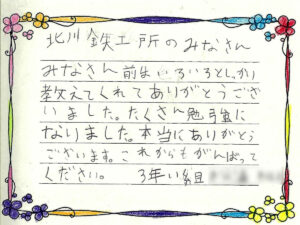 北川鉄工所のみなさん
みなさん前はいろいろとしっかり
教えてくれてありがとうござ
いました。たくさん勉強に
なりました。本当にありがとう
ございます。これからもがんばって
ください。 3年い組